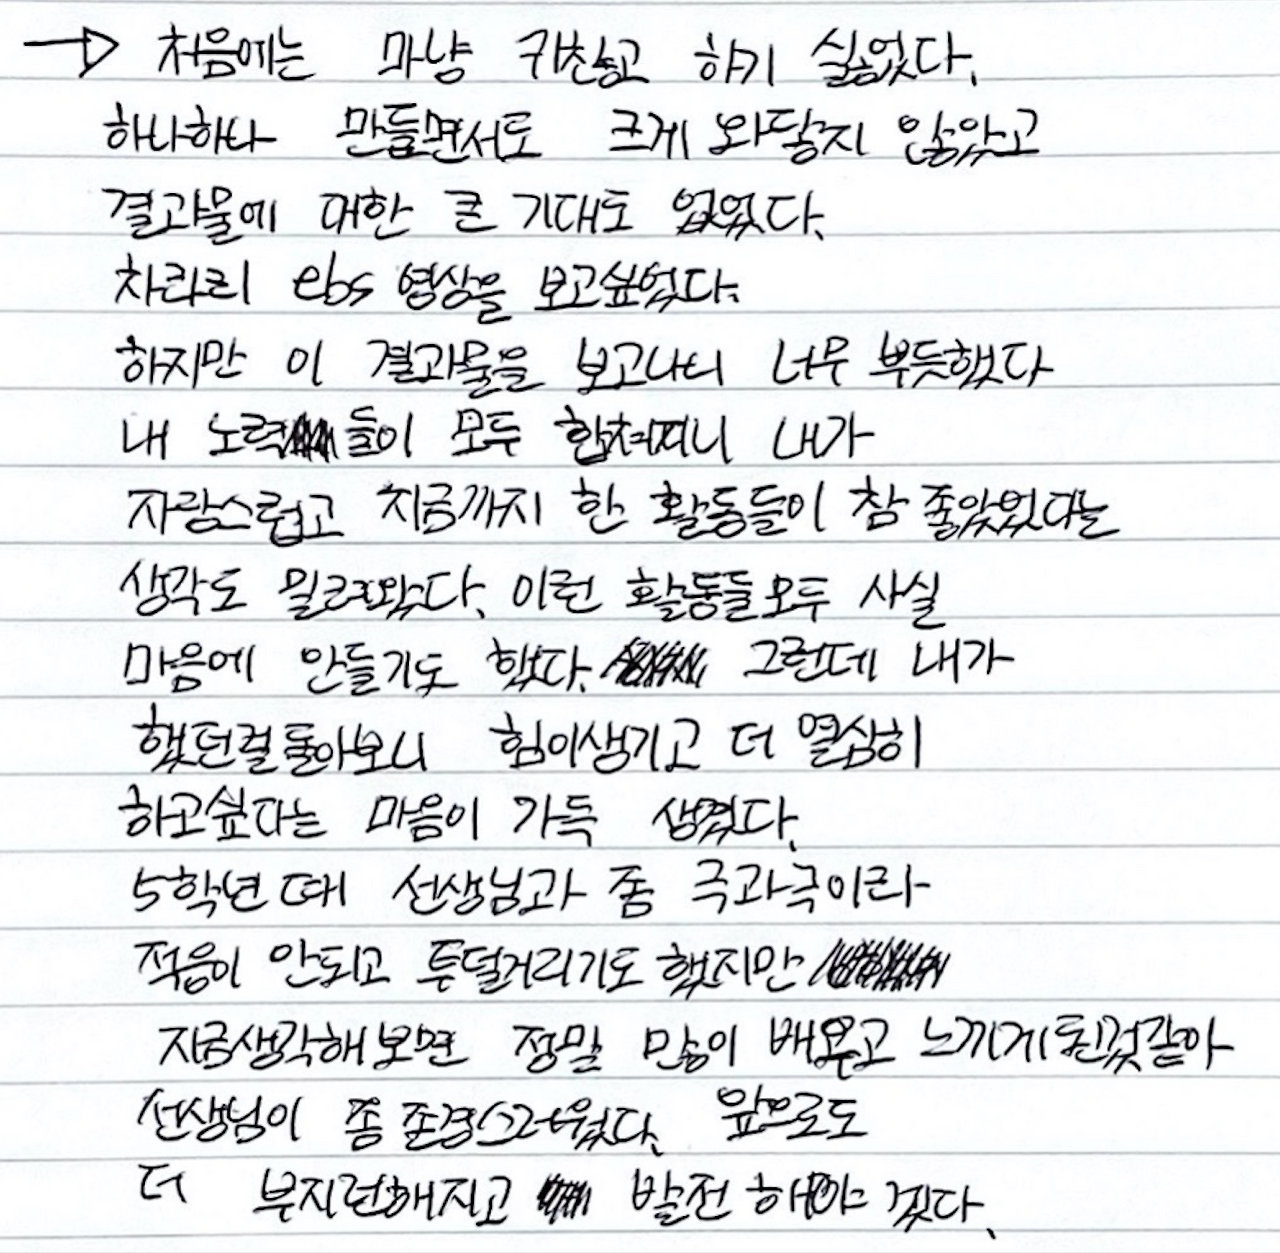 → 처음에는 마냥 귀찮고 하기 싫었다.
하나하나 만들면서도 크게 와닿지 않았고
결과물에 대한 큰 기대도 없었다.
차라리 ebs 영상을 보고싶었다.
하지만 이 결과물을 보고나니 너무 뿌듯했다
내 노력들이 모두 합쳐지니 내가
자랑스럽고 지금까지 한 활동들이 참 좋았었다는
생각도 밀려왔다. 이런 활동들모두 사실
마음에 안들기도 했다. 그런데 내가
했던걸돌아보니 힘이생기고 더 열심히
하고싶다는 마음이 가득 생겼다.
5학년 때 선생님과 좀 극과극이라
적응이 안되고 투덜거리기도 했지만
지금생각해보면 정말 많이 배우고 느끼게된것같아
선생님이 좀 존경스러웠다. 앞으로도
더 부지런해지고 발전 해야 겠다.